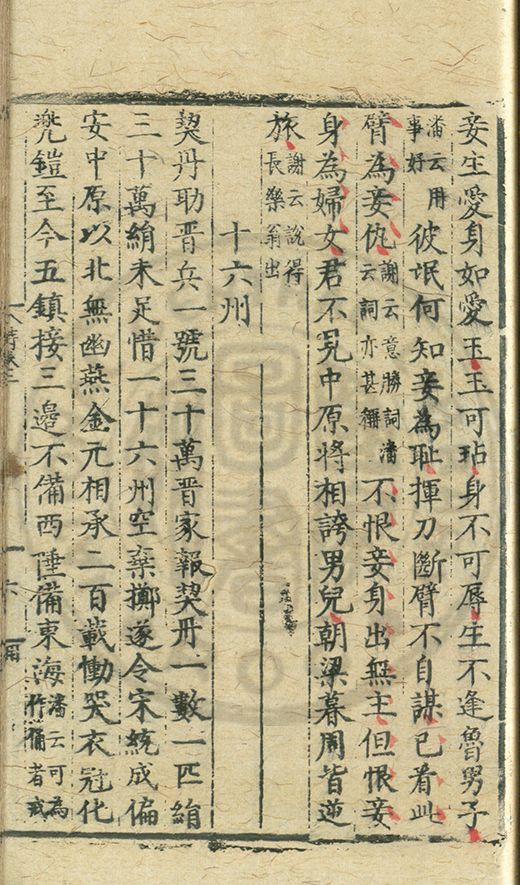 妾生愛身如愛玉玉可玷身不可辱生不逢魯男子
潘云用
事好
彼氓何知妾為恥揮刀斷臂不自謀已看此
臂為妾仇
謝云意勝詞潘
云詞亦甚稱
不恨妾身出無主但恨妾
身為婦女君不見中原將相誇男兒朝梁暮周皆逆
旅
謝云說得
長樂翁出
十六州
契丹助晉兵一號三十萬晉家報契丹一數一匹絹
三十萬絹未足惜一十六州空棄擲遂令宋統成偏
安中原以北無幽燕金元相承二百載慟哭衣冠化
兠鎧至今五鎮接三邊不備西陲備東海
潘云可為
作俑者戒